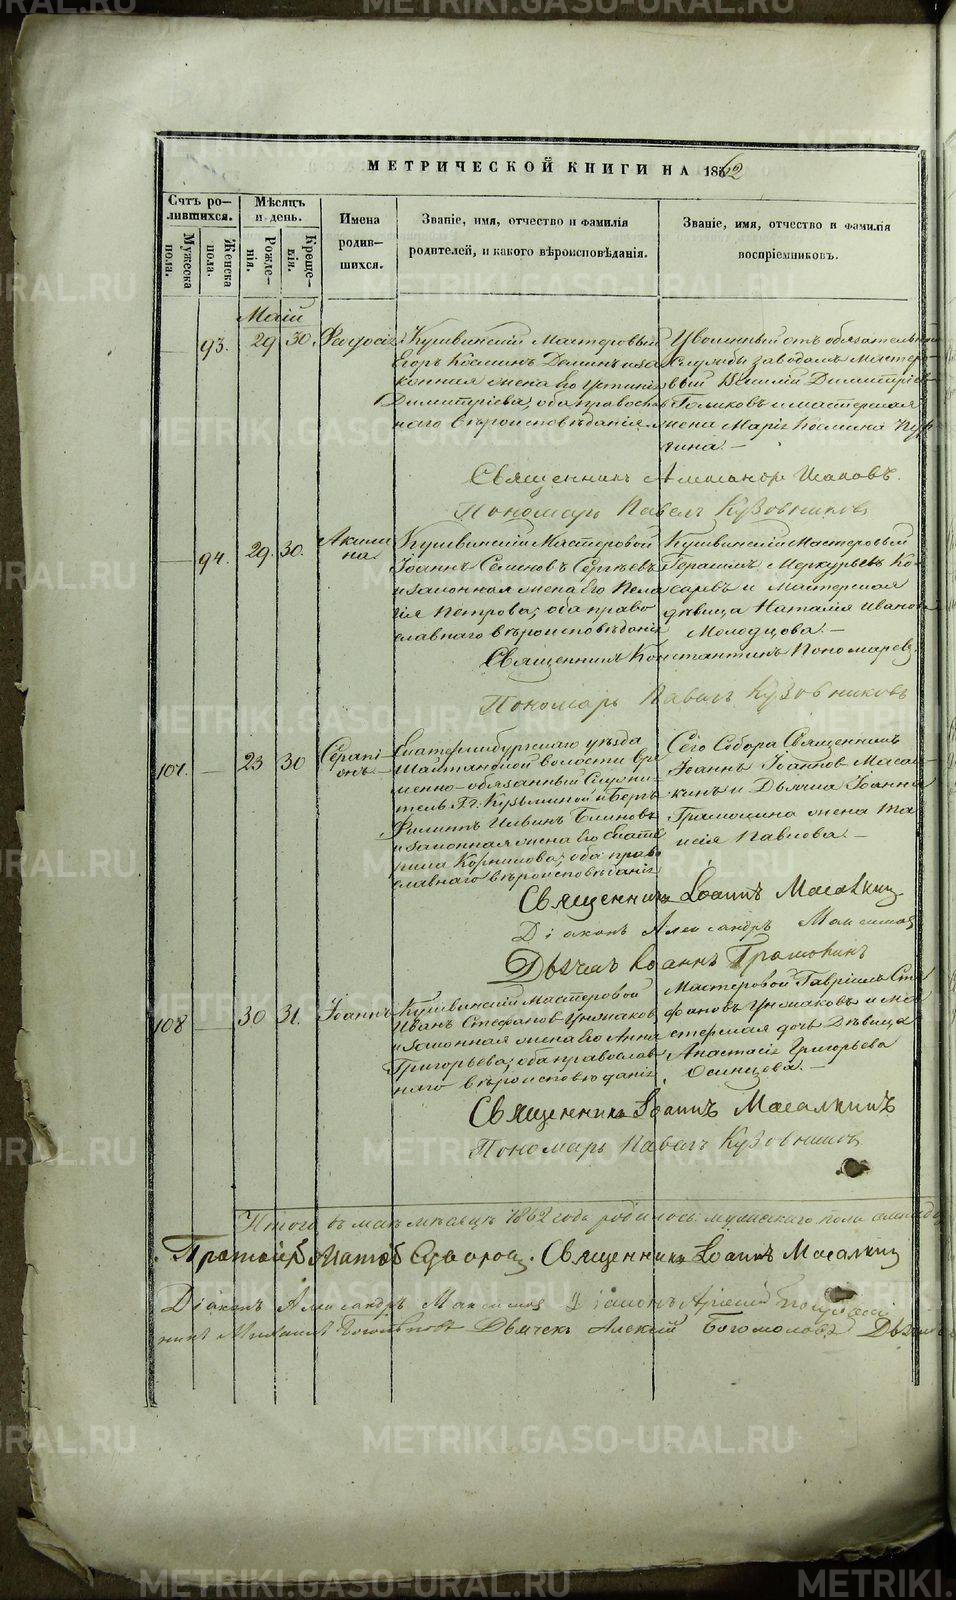 МЕТРИЧЕСКОЙ КНИГИ НА 1862
Счтъ ро-
дившихся.
Мужеска
пола.
Женска
пола.
Мѣсяцъ
и день.
Рожде-
нія.
Креще-
нія.
Имена
родив-
шихся.
Званіе, имя, отчество и фамилія
родителей, и какого вѣроисповѣданія.
Званіе, имя, отчество и фамилія
воспріемниковъ.
Маій
93. 29 30.
Кушвинскій Мастеровый
Егоръ Косминъ Деминъ и за
конная жена его Устинья
Димитріева, оба правосла
наго вѣроисповѣданія.
Уволенный отъ обязательной
службы заводамъ мастеро
вый Василій Димитріевъ
Голиковъ и мастерская
жена Марія Космина
Священникъ Александръ
Пономарь Павелъ Кузовниковъ
94. 29. 30.
Акили
на
Кушвинскій Мастеровой
Іоаннъ Семеновъ Сергѣевъ
и законная жена его Пела
гія Петрова, оба право
славнаго вѣроисповѣданія
Кушвинскій Мастеровый
Герасимъ Меркурьевъ Ко
саревъ и Мастерская
дѣвица Наталія Иванова
Молодцова.—
Священникъ Константинъ Пономаревъ
Пономарь Павелъ Кузовниковъ
107. — 23 30
Серапі
онъ
Екатеринбургскаго уѣзда
Шайтанской волости вре
менно-обязанный Служи
тель Гг. Кузьминой и Бергъ
Филиппъ Ильинъ Блиновъ
и законная жена его Екате
рина Корнилова, оба право
славнаго вѣроисповѣданія
Сего Собора Священникъ
Іоаннъ Іоанновъ Масал
кинъ и Дьячка Іоанна
Грамолина жена Та
исія Павлова.—
Священникъ Іоаннъ Масалкин
Діаконъ Александръ
Дьячекъ Іоаннъ
108 — 30 31.
Іоаннъ
Кушвинскій Мастеровой
Иванъ Стефановъ
и законная жена его Анна
Григорьева, оба православ
наго вѣроисповѣданія
Мастеровой Гавріилъ Сте
фановъ и ма
стерская дочь дѣвица
Анастасія Григорьева
Осинцева.—
Священникъ Іоаннъ Масалкинъ
Пономарь Павелъ Кузовников
Итого въ маѣ мѣсяцѣ 1862 года родилось мужескаго пола
Протоіерей Священникъ Іоаннъ Масалкин
Діаконъ Александръ Діаконъ
Михаилъ Дьячекъ Алексій Богомоловъ
METRIKI.GASO-URAL.RU